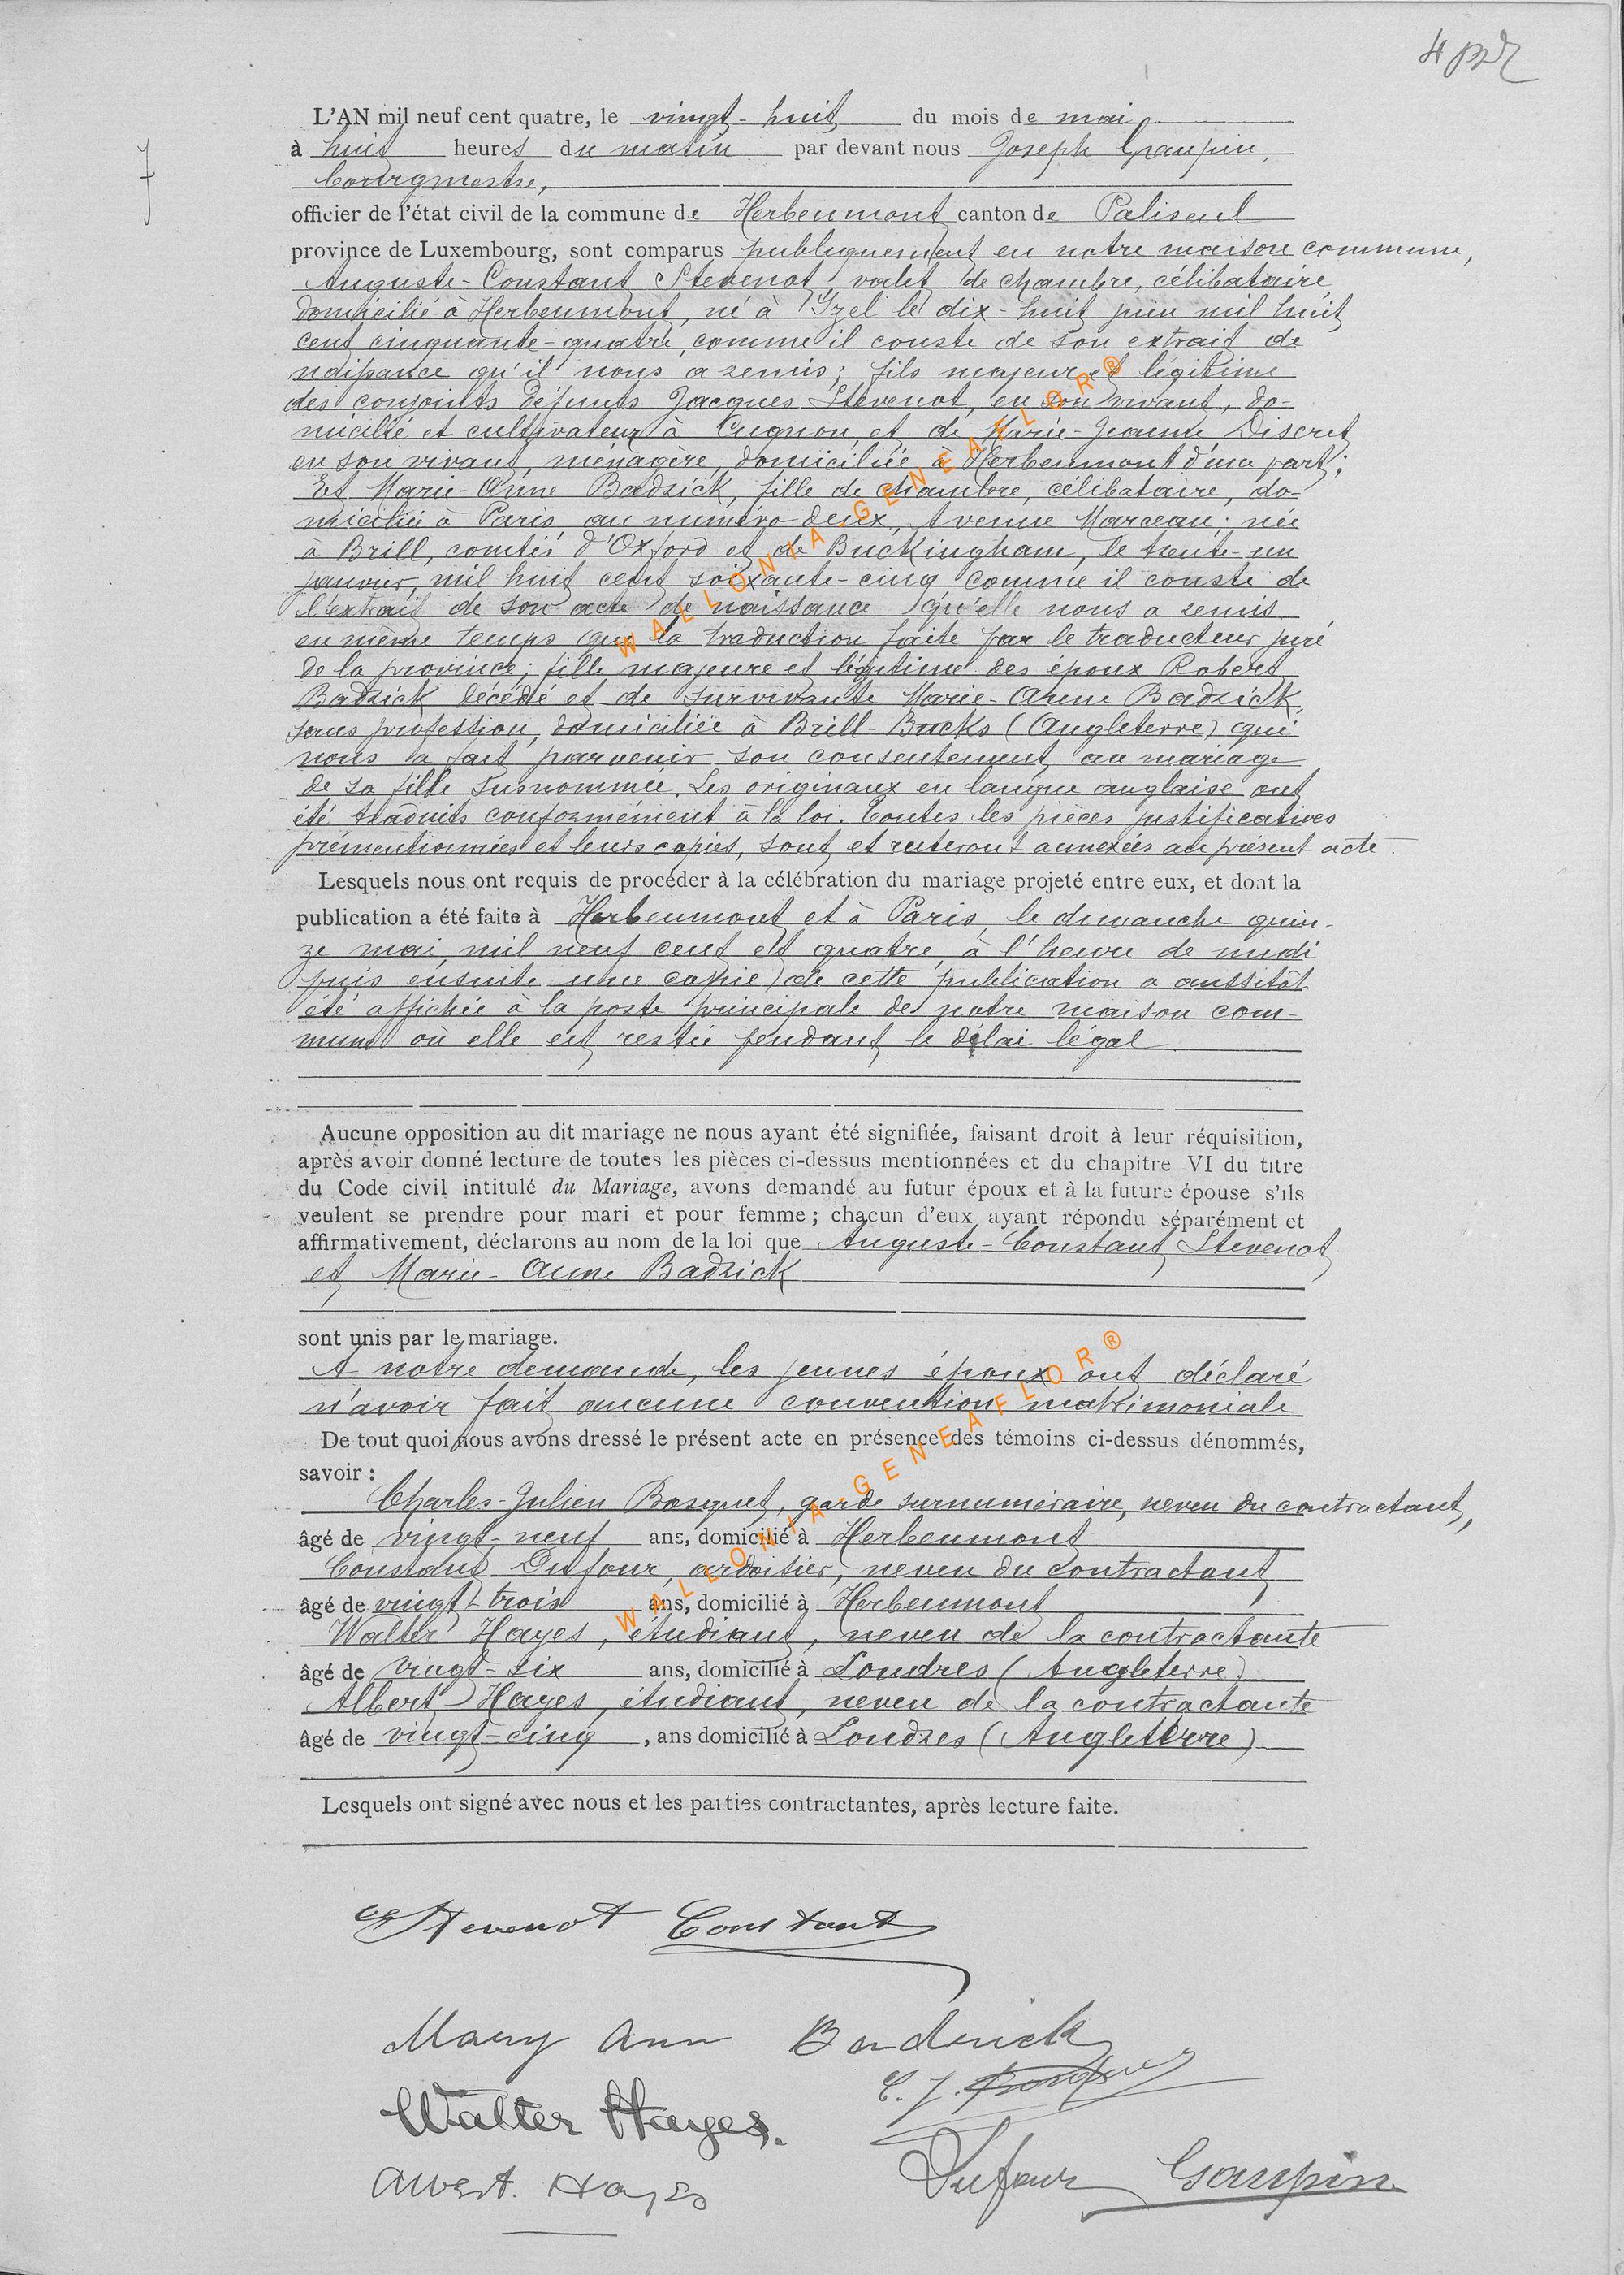 7
L'AN mil neuf cent quatre, le vingt-huit du mois de mai
à huit heures du matin par devant nous Joseph Graupin,
bourgmestre,
officier de l'état civil de la commune de Herbeumont canton de Paliseul
province de Luxembourg, sont comparus publiquement en notre maison commune,
Auguste-Constant Stevenot, valet de chambre, célibataire,
domicilié à Herbeumont, né à Izel le dix-huit juin mil huit
cent cinquante-quatre, comme il conste de son extrait de
naissance qu'il nous a remis; fils majeur et légitime
des conjoints défunts Jacques Stevenot, en son vivant, do-
micilié et cultivateur à Cugnon, et de Marie-Jeanne Discret
en son vivant, ménagère, domiciliée à Herbeumont d'une part;
Et Marie-Anne Badrick, fille de chambre, célibataire, do-
miciliée à Paris au numéro deux, Avenue Marceau; née
à Brill, comtés d'Oxford et de Buckingham, le trente-un
janvier, mil huit cent soixante-cinq comme il conste de
l'extrait de son acte de naissance qu'elle nous a remis
en même temps que la traduction faite par le traducteur juré
de la province; fille majeure et légitime des époux Robert
Badrick décédé et de survivante Marie-Anne Badrick,
sans profession, domiciliée à Brill-Bucks (Angleterre) qui
nous a fait parvenir son consentement au mariage
de sa fille susnommée. Les originaux en langue anglaise ont
été traduits conformément à la loi. Toutes les pièces justificatives
prémentionnées et leurs copies, sont et resteront annexées au présent acte.
Lesquels nous ont requis de procéder à la célébration du mariage projeté entre eux, et dont la
publication a été faite à Herbeumont et à Paris, le dimanche quin-
ze mai, mil neuf cent et quatre, à l'heure de midi
puis ensuite une copie de cette publication a aussitôt
été affichée à la porte principale de notre maison com-
mune où elle est restée pendant le délai légal
Aucune opposition au dit mariage ne nous ayant été signifiée, faisant droit à leur réquisition,
après avoir donné lecture de toutes les pièces ci-dessus mentionnées et du chapitre VI du titre
du Code civil intitulé du Mariage, avons demandé au futur époux et à la future épouse s'ils
veulent se prendre pour mari et pour femme; chacun d'eux ayant répondu séparément et
affirmativement, déclarons au nom de la loi que Auguste-Constant Stevenot
et Marie-Anne Badrick
sont unis par le mariage.
A notre demande, les jeunes époux ont déclaré
n'avoir fait aucune convention matrimoniale
De tout quoi nous avons dressé le présent acte en présence des témoins ci-dessus dénommés,
savoir :
Charles-Julien Bosquet, garde surnuméraire, neveu du contractant,
âgé de vingt-neuf ans, domicilié à Herbeumont
Constant Dufour, ardoisier, neveu du contractant
âgé de vingt-trois ans, domicilié à Herbeumont
Walter Hayes, étudiant, neveu de la contractante
âgé de vingt-six ans, domicilié à Londres (Angleterre)
Albert Hayes, étudiant, neveu de la contractante
âgé de vingt-cinq, ans domicilié à Londres (Angleterre)
Lesquels ont signé avec nous et les parties contractantes, après lecture faite.
Stevenot Constant
Mary Ann Badrick
C. J. Bosquet
Walter Hayes.
Albert. Hayes
Dufour Graupin
WALLONIA-GENEAFLOR®
WALLONIA-GENEAFLOR®